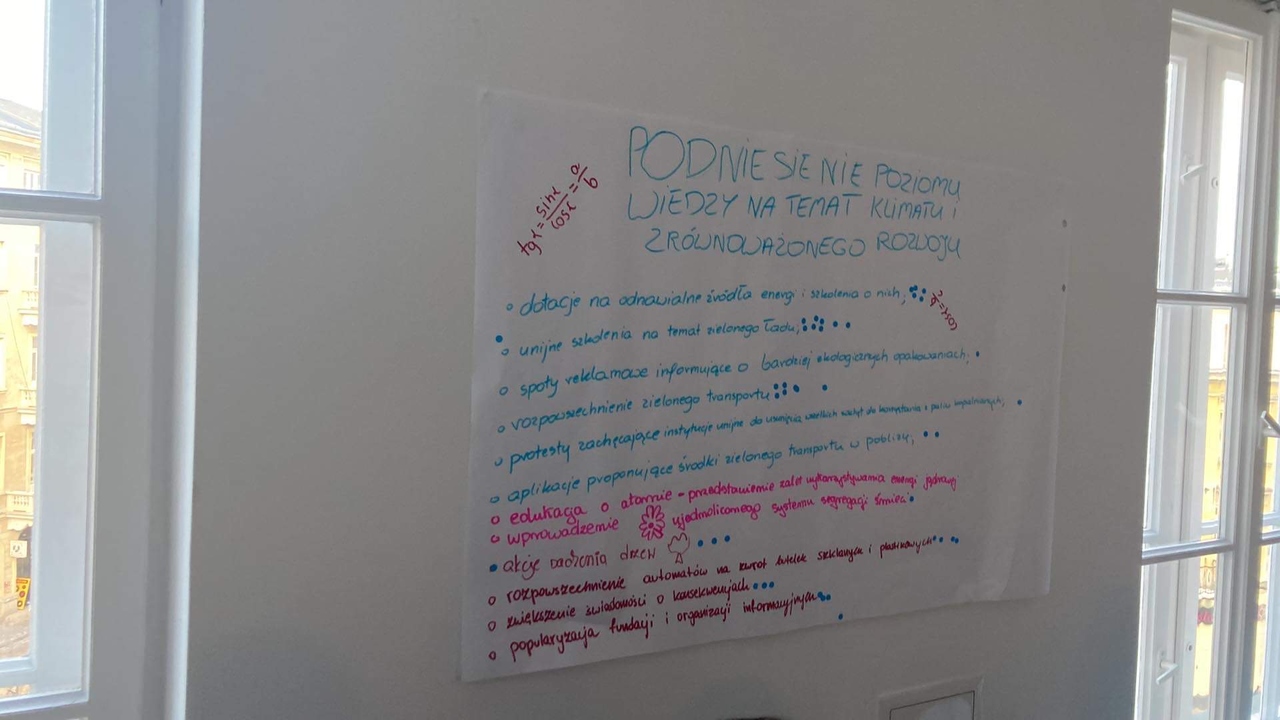 PODNIESIENIE POZIOMU
WIEDZY NA TEMAT KLIMATU I
ZRÓWNOWAŻONEGO ROZWOJU
tgα = sinα/cosα = a/b
dotacje na odnawialne źródła energi i szkolenia o nich;
unijne szkolenia na temat zielonego Ładu;
spoty reklamowe informujące o bardziej ekologicznych opakowaniach;
rozpowszechnienie zielonego transportu
protesty zachęcające instytucje unijne do usunięcia wielkich korzystania z paliw kopalnianych;
aplikacje proponujące środki zielonego transportu w pobliżu;
edukacja o atomie - przedstawienie zalet wykorzystywania energi jądrowej
wprowadzenie ujednoliconego systemu segregacji śmieci
akcje sadzenia drzew
rozpowszechnienie automatów na zwrot butelek szklanych i plastikowych
zwiększenie świadomości o konsekwencjach
popularyzacja fundacji i organizacji informacyjnych